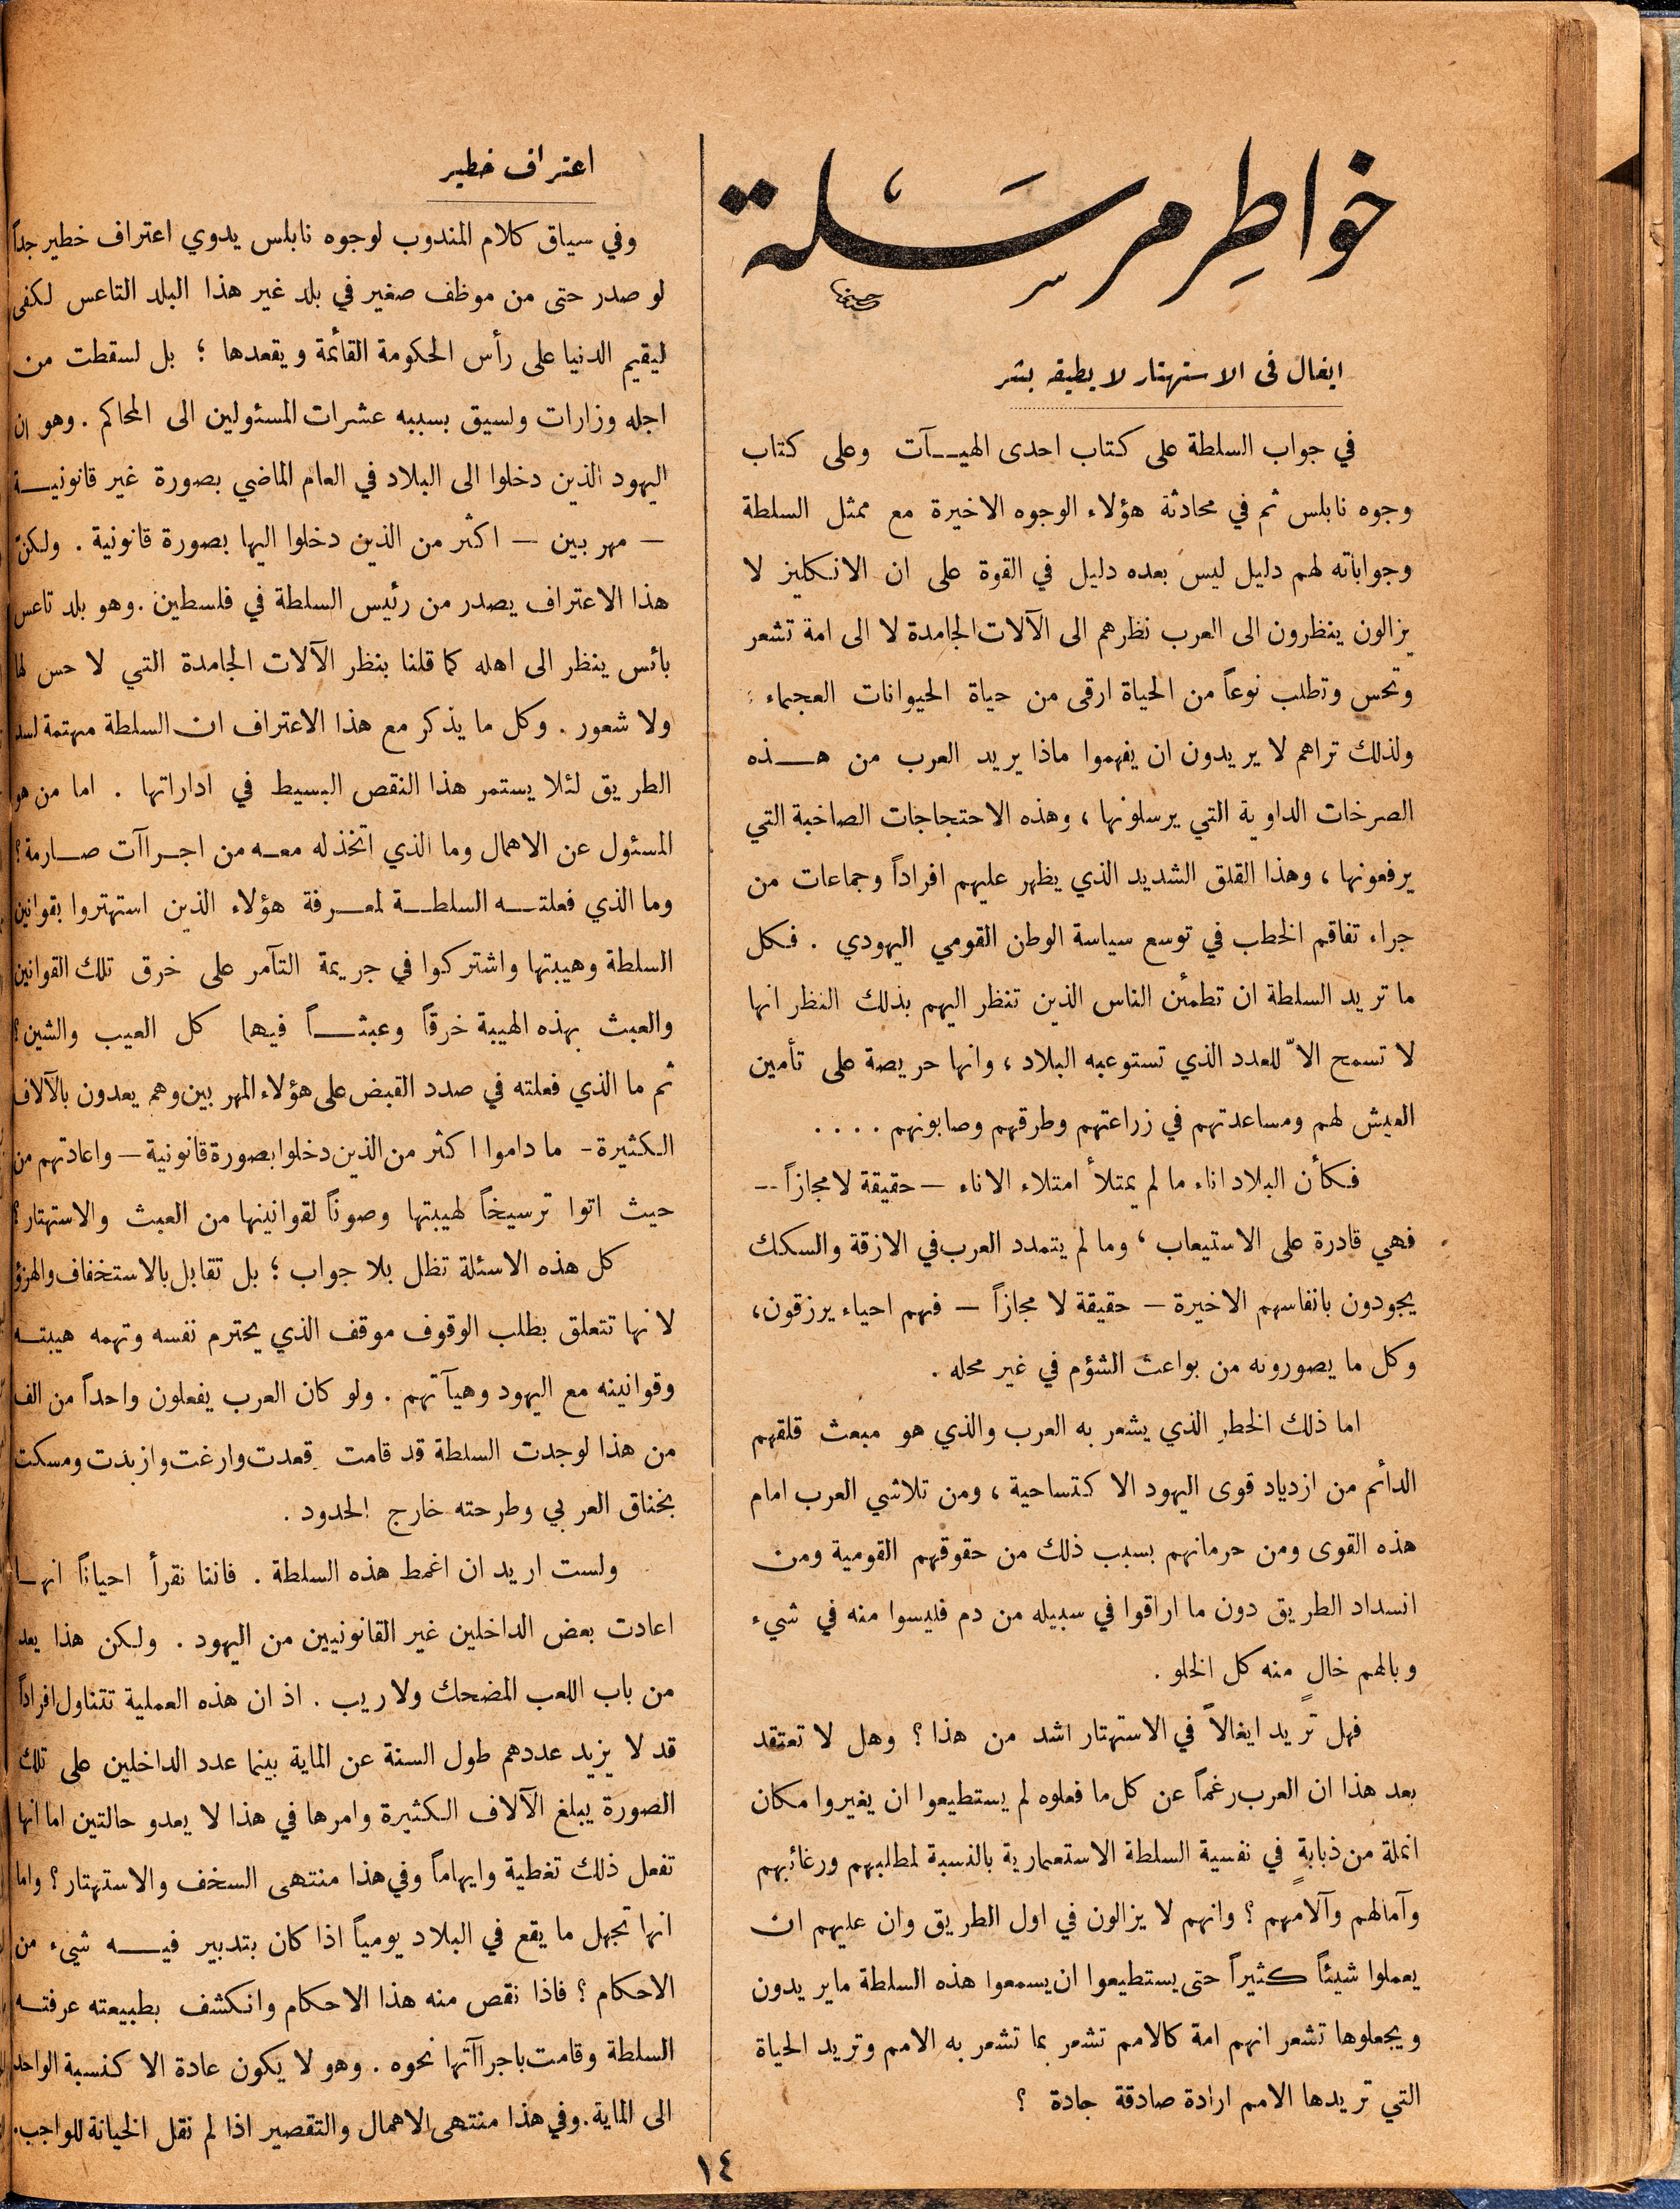 خواطر مرسلة
ايغال في الاستهتار لا يطيقه بشر
في جواب السلطة على كتاب احدى الهيــآت وعلى كتاب
وجوه نابلس ثم في محادثة هؤلاء الوجوه الاخيرة مع ممثل السلطة
وجواباته لهم دليل ليس بعده دليل في القوة على ان الانكليز لا
يزالون ينظرون الى العرب نظرهم الى الآلات الجامدة لا الى امة تشعر
وتحس وتطلب نوعاً من الحياة ارقى من حياة الحيوانات العجماء ؛
ولذلك تراهم لا يريدون ان يفهموا ماذا يريد العرب من هــذه
الصرخات الداوية التي يرسلونها ، وهذه الاحتجاجات الصاخبة التي
يرفعونها ، وهذا القلق الشديد الذي يظهر عليهم افراداً وجماعات من
جراء تفاقم الخطب في توسع سياسة الوطن القومي اليهودي . فكل
ما تريد السلطة ان تطمئن الناس الذين تنظر اليهم بذلك النظر انها
لا تسمح الاّ للعدد الذي تستوعبه البلاد ، وانها حريصة على تأمين
العيش لهم ومساعدتهم في زراعتهم وطرقهم وصابونهم . . . .
فكأن البلاد اناء ما لم يمتلأ امتلاء الاناء — حقيقة لا مجازاً —
فهي قادرة على الاستيعاب ، وما لم يتمدد العرب في الازقة والسكك
يجودون بانفاسهم الاخيرة — حقيقة لا مجازاً — فهم احياء يرزقون،
وكل ما يصورونه من بواعث الشؤم في غير محله .
اما ذلك الخطر الذي يشعر به العرب والذي هو مبعث قلقهم
الدائم من ازدياد قوى اليهود الاكتساحية ، ومن تلاشي العرب امام
هذه القوى ومن حرمانهم بسبب ذلك من حقوقهم القومية ومن
انسداد الطريق دون ما اراقوا في سبيله من دم فليسوا منه في شيء
وبالهم خالٍ منه كل الخلو .
فهل تريد ايغالاً في الاستهتار اشد من هذا ؟ وهل لا تعتقد
بعد هذا ان العرب رغماً عن كل ما فعلوه لم يستطيعوا ان يغيروا مكان
انملة من ذبابةٍ في نفسية السلطة الاستعمارية بالنسبة لمطلبهم ورغائبهم
وآمالهم وآلامهم ؟ وانهم لا يزالون في اول الطريق وان عليهم ان
يعملوا شيئاً كثيراً حتى يستطيعوا ان يسمعوا هذه السلطة ما يريدون
ويجعلوها تشعر انهم امة كالامم تشعر بما تشعر به الامم وتريد الحياة
التي تريدها الامم ارادة صادقة جادة ؟
اعتراف خطير
وفي سياق كلام المندوب لوجوه نابلس يدوي اعتراف خطير جداً
لو صدر حتى من موظف صغير في بلد غير هذا البلد التاعس لكفى
ليقيم الدنيا على رأس الحكومة القائمة ويقعدها ؛ بل لسقطت من
اجله وزارات ولسيق بسببه عشرات المسئولين الى المحاكم . وهو ان
اليهود الذين دخلوا الى البلاد في العام الماضي بصورة غير قانونيــة
— مهربين — اكثر من الذين دخلوا اليها بصورة قانونية . ولكنّ
هذا الاعتراف يصدر من رئيس السلطة في فلسطين . وهو بلد تاعس
بائس ينظر الى اهله كما قلنا بنظر الآلات الجامدة التي لا حس لها
ولا شعور . وكل ما يذكر مع هذا الاعتراف ان السلطة مهتمة لسد
الطريق لئلا يستمر هذا النقص البسيط في اداراتها . اما من هو
المسئول عن الاهمال وما الذي اتخذ له معــه من اجــراآت صــارمة ؟
وما الذي فعلتــه السلطــة لمعــرفة هؤلاء الذين استهتروا بقوانين
السلطة وهيبتها واشتركوا في جريمة التآمر على خرق تلك القوانين
والعبث بهذه الهيبة خرقاً وعبثــاً فيها كل العيب والشين ؟
ثم ما الذي فعلته في صدد القبض على هؤلاء المهربين وهم يعدون بالآلاف
الكثيرة - ما داموا اكثر من الذين دخلوا بصورة قانونية — واعادتهم من
حيث اتوا ترسيخاً لهيبتها وصوناً لقوانينها من العبث والاستهتار ؟
كل هذه الاسئلة تظل بلا جواب ؛ بل تقابل بالاستخفاف والهزؤ
لانها تتعلق بطلب الوقوف موقف الذي يحترم نفسه وتهمه هيبتــه
وقوانينه مع اليهود وهيآتهم . ولو كان العرب يفعلون واحداً من الف
من هذا لوجدت السلطة قد قامت وقعدت وارغت وازبدت ومسكت
بخناق العربي وطرحته خارج الحدود .
ولست اريد ان اغمط هذه السلطة . فاننا نقرأ احياناً انهــا
اعادت بعض الداخلين غير القانونيين من اليهود . ولكن هذا يعد
من باب اللعب المضحك ولا ريب . اذ ان هذه العملية تتناول افراداً
قد لا يزيد عددهم طول السنة عن الماية بينما عدد الداخلين على تلك
الصورة يبلغ الآلاف الكثيرة وامرها في هذا لا يعدو حالتين اما انها
تفعل ذلك تغطية وايهاماً وفي هذا منتهى السخف والاستهتار ؟ واما
انها تجهل ما يقع في البلاد يومياً اذا كان بتدبير فيــه شيء من
الاحكام ؟ فاذا نقص منه هذا الاحكام وانكشف بطبيعته عرفتــه
السلطة وقامت باجراآتها نحوه . وهو لا يكون عادة الا كنسبة الواحد
الى الماية . وفي هذا منتهى الاهمال والتقصير اذا لم نقل الخيانة للواجب.
١٤